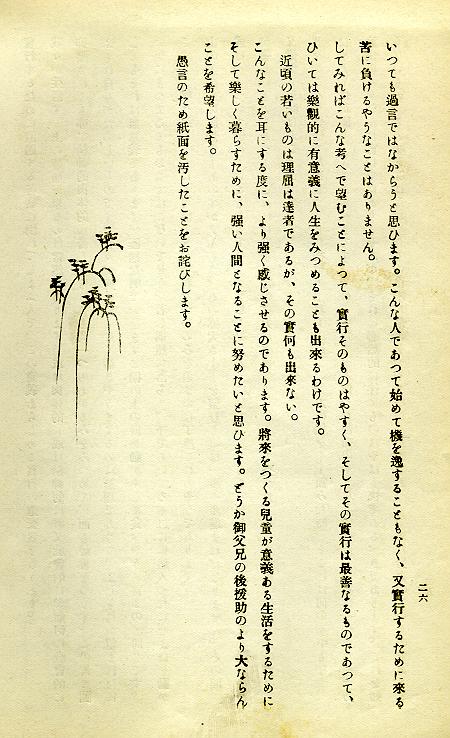 いつても過言ではなからうと思ひます。こんな人であつて始めて機を逸することもなく、又實行するために來る
苦に負けるやうなことはありません。
してみればこんな考へで望むことによつて、實行そのものはやすく、そしてその實行は最善なるものであつて、
ひいては樂觀的に有意義に人生をみつめることも出來るわけです。
近頃の若いものは理屈は達者であるが、その實何も出來ない。
こんなことを耳にする度に、より強く感じさせるのであります。將來をつくる兒童が意義ある生活をするために
そして樂しく暮らすために、強い人間となることに努めたいと思ひます。どうか御父兄の後援助のより大ならん
ことを希望します。
愚言のため紙面を汚したことをお詫びします。
二六